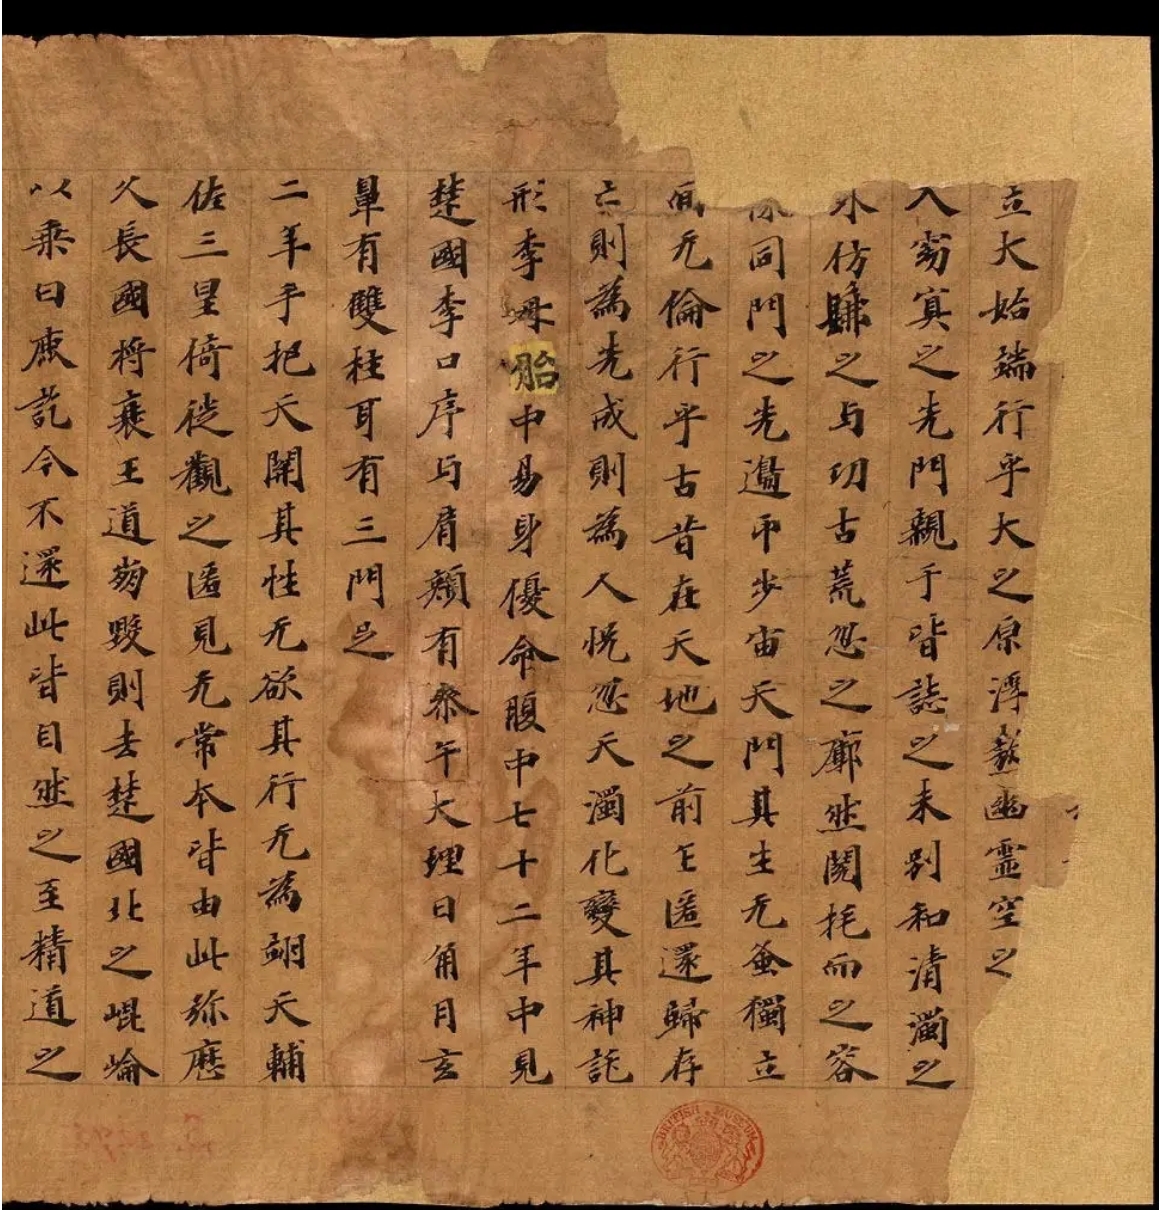 立大始端行乎大之原浮熬幽靈空之
入窈冥之先門親乎皆誌之未別和清濁之
外仿之与功古荒忽之廓然閱托而之容
像同門之先邊匝步宙天門其生无蚤獨立
而无倫行乎古昔在天地之前乍匿還歸存
亡則為先成則為人恍忽天濁化變其神託
形李母胎中易身優命腹中七十二年中見
楚國李口序与肩頰有参午大理日角月玄
鼻有雙柱耳有三門足
二年手把天關其性无欲其行无為翮天輔
佐三皇倚徙觀之匿見无常本皆由此弥歷
久長國將衰王道崩毀則去楚國北之崐崘
以乘白鹿訖今不還此皆自然之至精道之
BRITISH MUSEUM